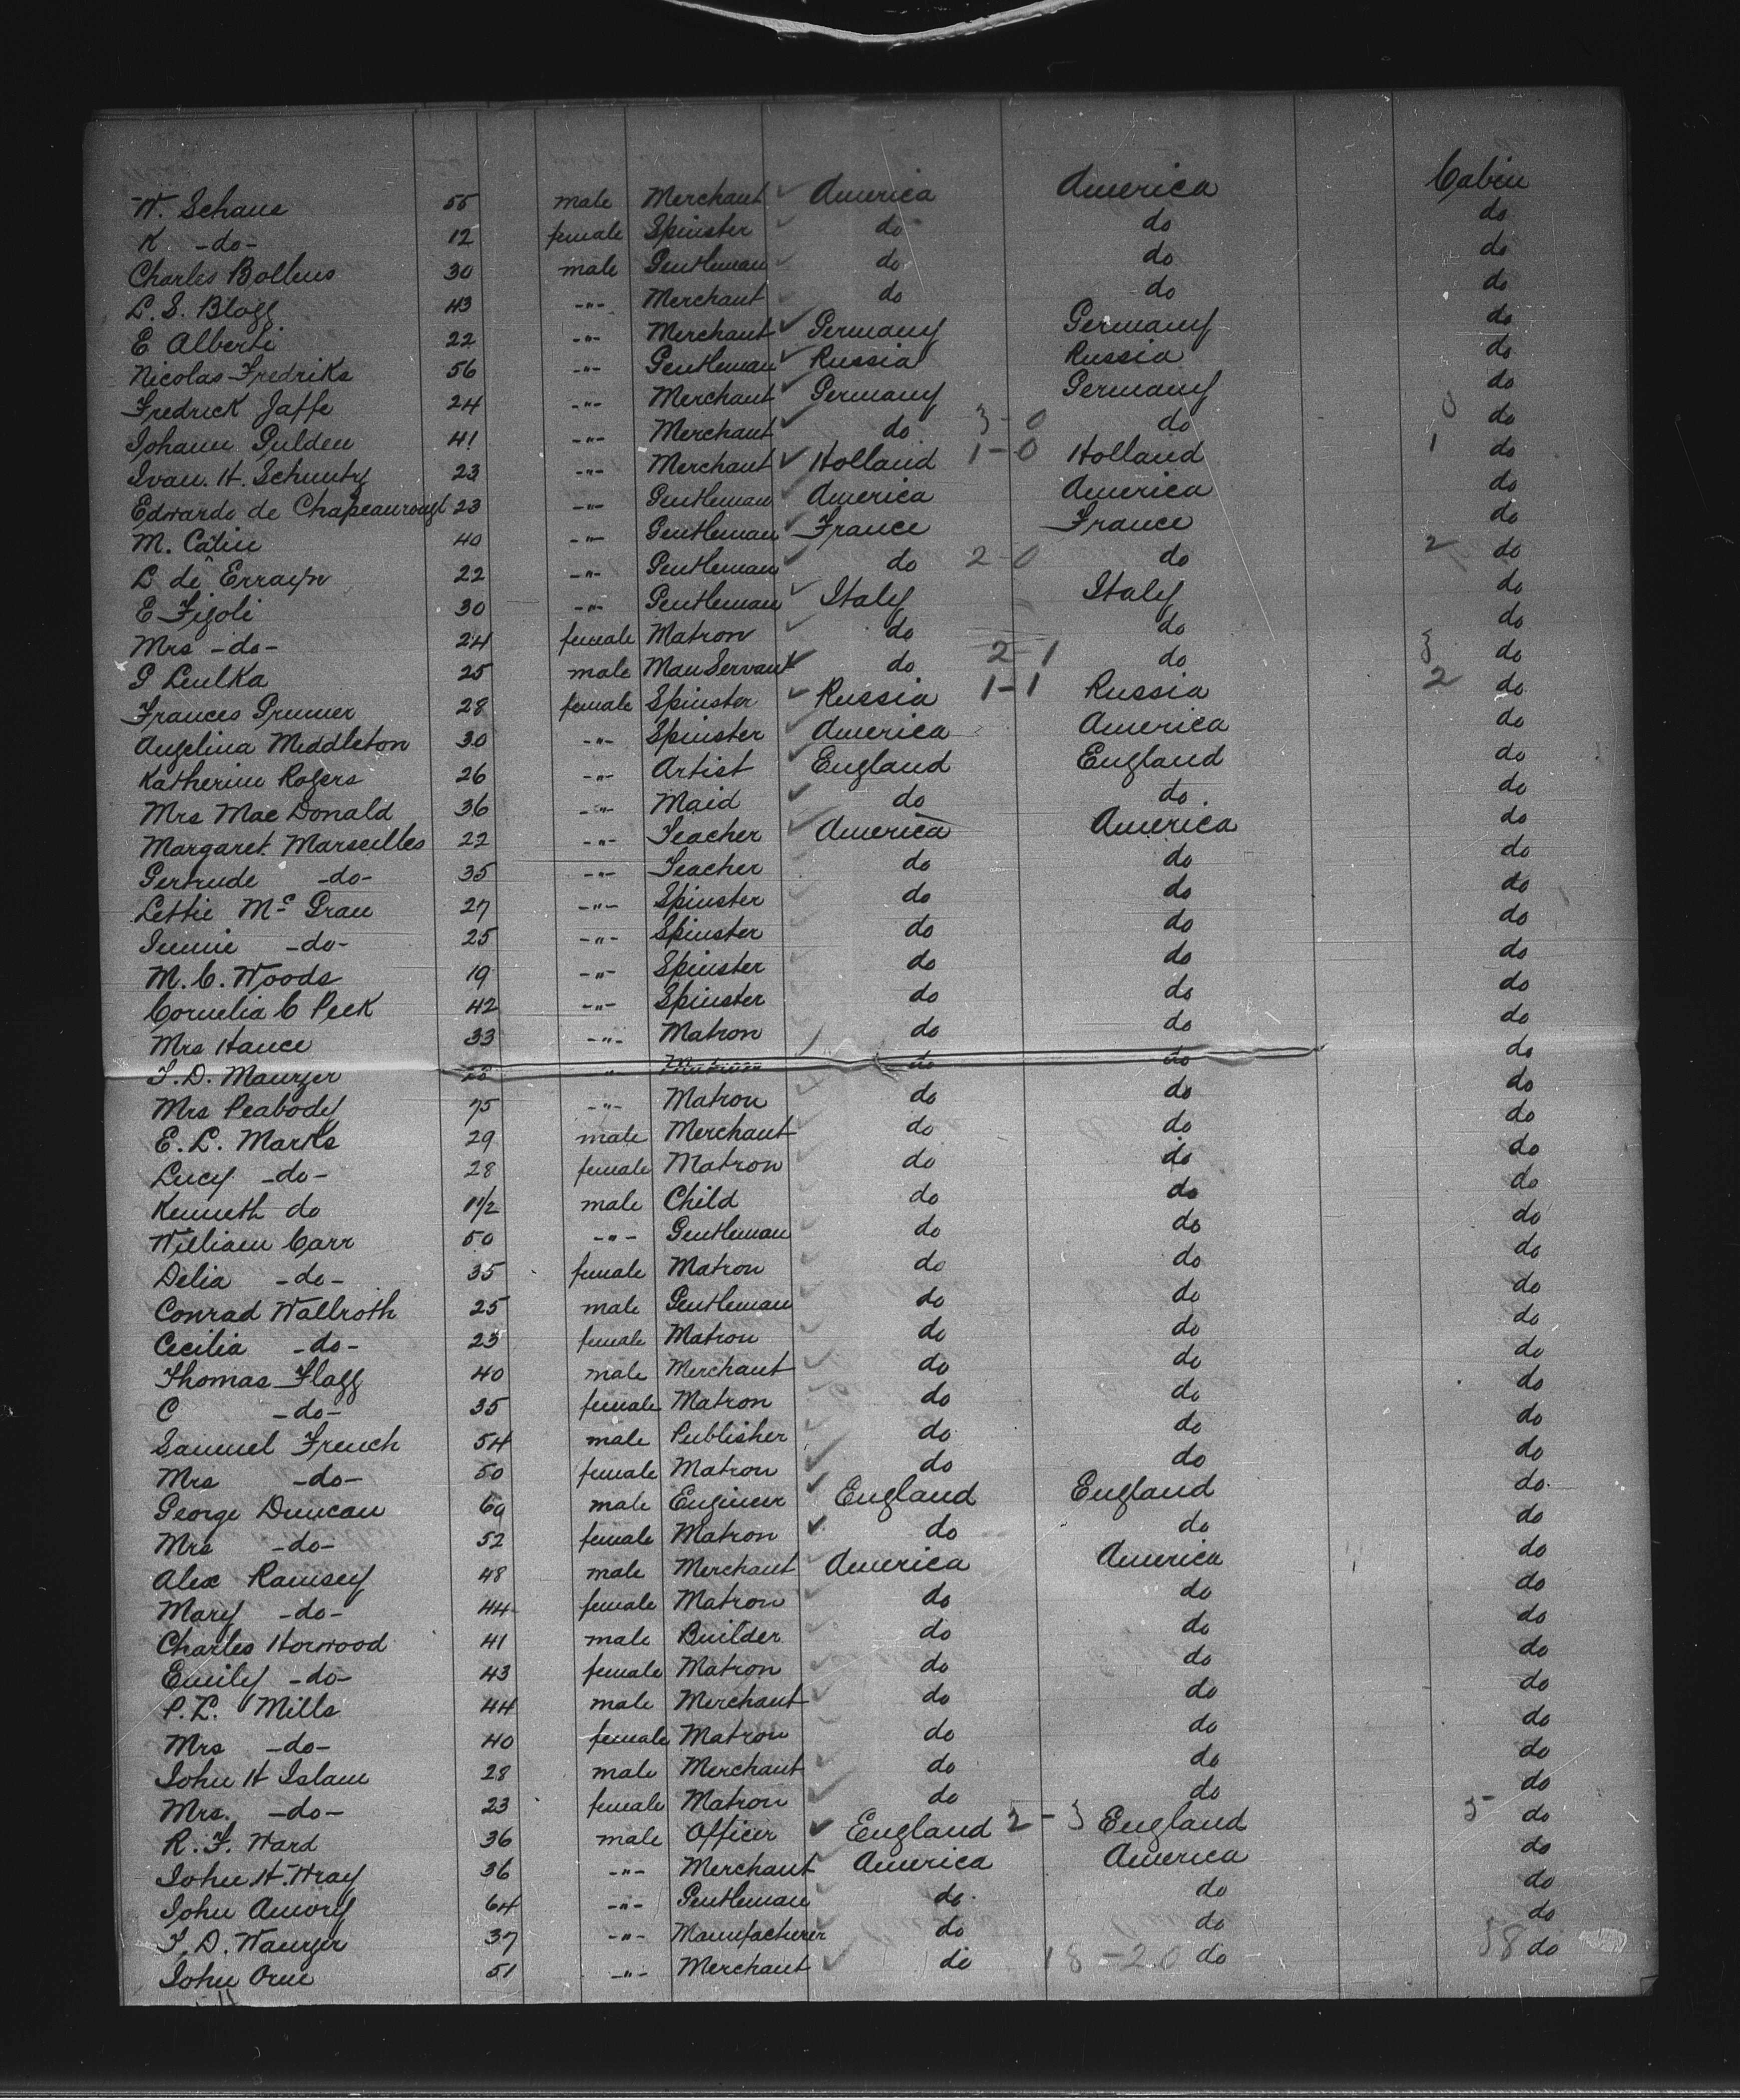 W. Schaus 55 male Merchant America America Cabin
K -do- 12 female Spinster do do do
Charles Bolleus 30 male Gentleman do do do
L. S. Blagg 43 -"- Merchant do do do
E Alberti 22 -"- Merchant Germany Germany do
Nicolas Fredriks 56 -"- Gentleman Russia Russia do
Fredrick Jaffe 24 -"- Merchant Germany Germany do
Johann Gulden 41 -"- Merchant do 3-0 do 0 do
Ivan. H. 23 -"- Merchant Holland 1-0 Holland 1 do
Edwardo de 23 -"- Gentleman America America do
M. 40 -"- Gentleman France France do
L de 22 -"- Gentleman do 2-0 do 2 do
E Figoli 30 -"- Gentleman Italy Italy do
Mrs -do- 24 female Matron do do do
G Leulka 25 male Man Servant do 2-1 do 3 do
Frances 28 female Spinster Russia 1-1 Russia 2 do
Angelina Middleton 30 -"- Spinster America America do
Katherine Rogers 26 -"- Artist England England do
Mrs Mac Donald 36 -"- Maid do do do
Margaret Marseilles 22 -"- Teacher America America do
Gertrude -do- 35 -"- Teacher do do do
Lettie Mc Grau 27 -"- Spinster do do do
Jennie -do- 25 -"- Spinster do do do
M. C. Woods 19 -"- Spinster do do do
Cornelia C Peek 42 -"- Spinster do do do
Mrs Hance 33 -"- Matron do do do
28 " Matron do do do
Mrs Peabody 75 -"- Matron do do do
E. L. Marks 29 male Merchant do do do
Lucy -do- 28 female Matron do do do
Kenneth do 1 1/2 male Child do do do
William Carr 50 -"- Gentleman do do do
Delia -do- 35 female Matron do do do
Conrad Wallroth 25 male Gentleman do do do
Cecilia -do- 23 female Matron do do do
Thomas Flagg 40 male Merchant do do do
C -do- 35 female Matron do do do
Samuel French 54 male Publisher do do do
Mrs -do- 50 female Matron do do do
George Duncan 60 male Engineer England England do
Mrs -do- 52 female Matron do do do
Alex Ramsey 48 male Merchant America America do
Mary -do- 44 female Matron do do do
Charles Horwood 41 male Builder do do do
Emily -do- 43 female Matron do do do
P. L. Mills 44 male Merchant do do do
Mrs -do- 40 female Matron do do do
John H Islam 28 male Merchant do do do
Mrs. -do- 23 female Matron do do do
R. F. Ward 36 male Officer England 2-3 England 5 do
John H. Wray 36 -"- Merchant America America do
John Amory 64 -"- Gentleman do do do
37 -"- Manufacturer do do do
John Orne 51 -"- Merchant do 18-20 do 38 do